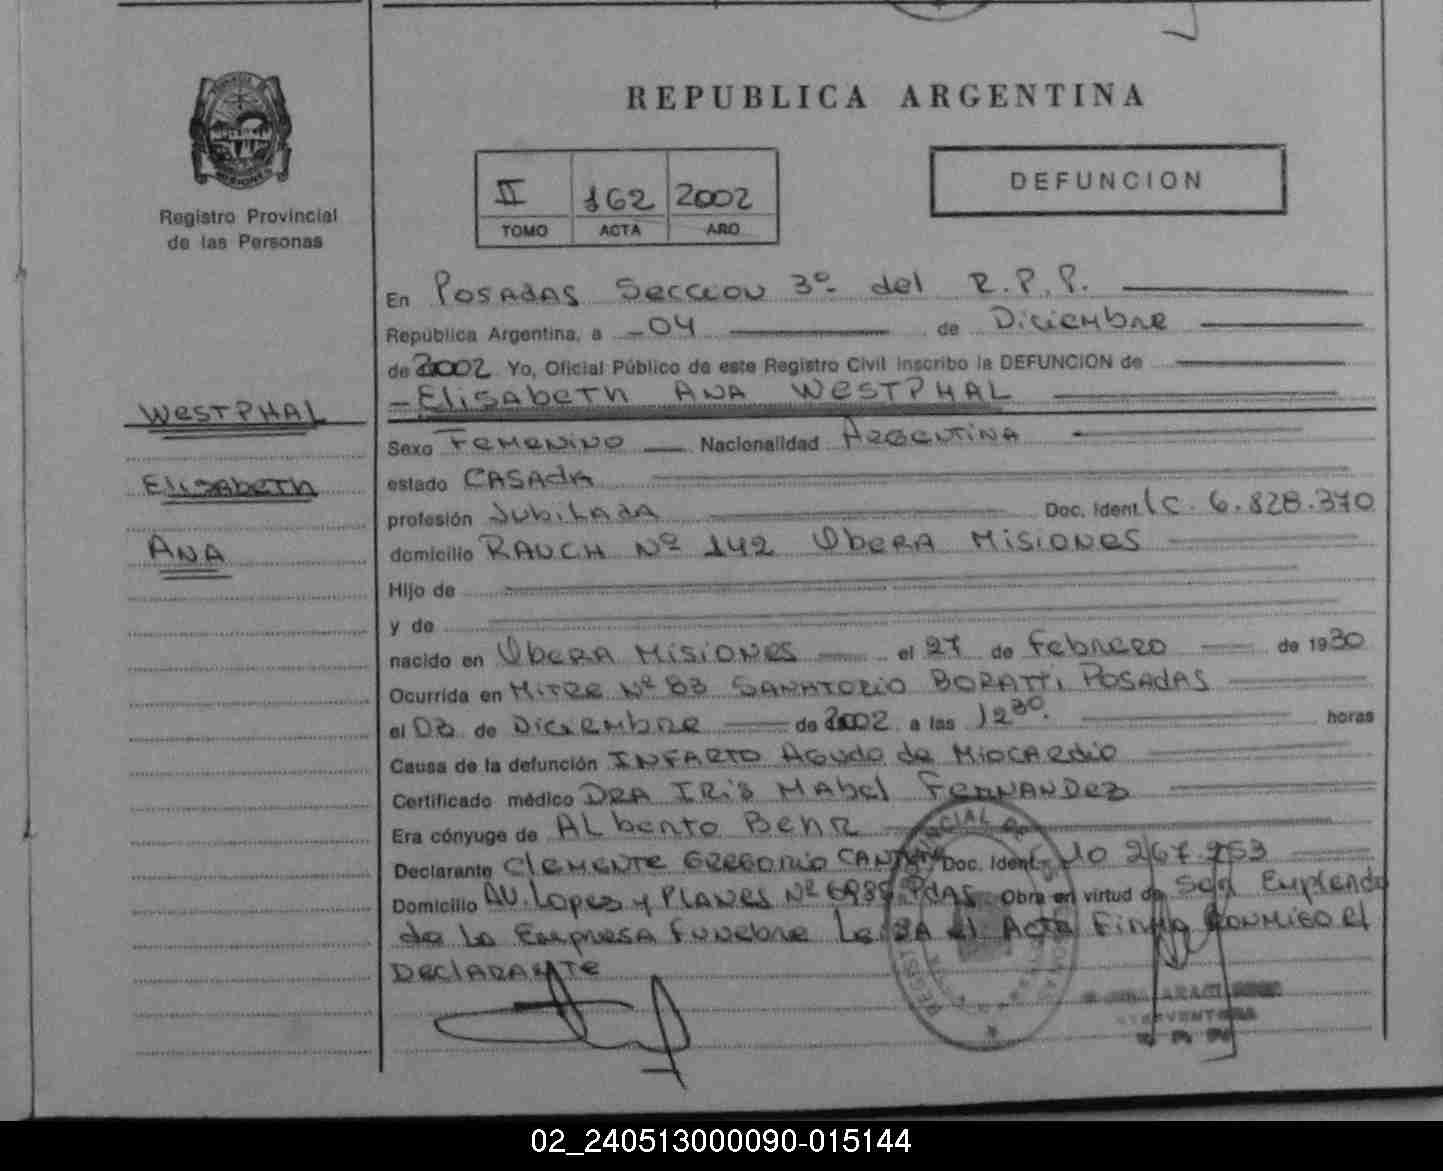 REPUBLICA ARGENTINA
MISIONES
Registro Provincial
de las Personas
II 162 2002
TOMO ACTA AÑO
DEFUNCION
En Posadas Seccion 3º del R.P.P.
República Argentina, a -04 de Diciembre
de 2002 Yo, Oficial Público de este Registro Civil inscribo la DEFUNCION de
- Elisabeth Ana Westphal
Westphal
Elisabeth
Ana
Sexo Femenino Nacionalidad Argentina
estado Casada
profesión Jubilada Doc. Ident. LC. 6.828.370
domicilio Rauch Nº 142 Obera Misiones
Hijo de
y de
nacido en Obera Misiones el 27 de Febrero de 1930
Ocurrida en Mitre Nº 83 Sanatorio Boratti Posadas
el 03 de Diciembre de 2002 a las 12 30. horas
Causa de la defunción Infarto Agudo de Miocardio
Certificado médico Dra Iris Mabel Fernandez
Era cónyuge de Alberto Benr
Declarante Clemente Gregorio Doc. Ident. 10 267.953
Domicilio Av. Lopes y Planes Nº Pdas Obra en virtud de Ser Empleado
de la Empresa Funebre Leida el Acta Firma Conmigo el
Declarante
02_240513000090-015144